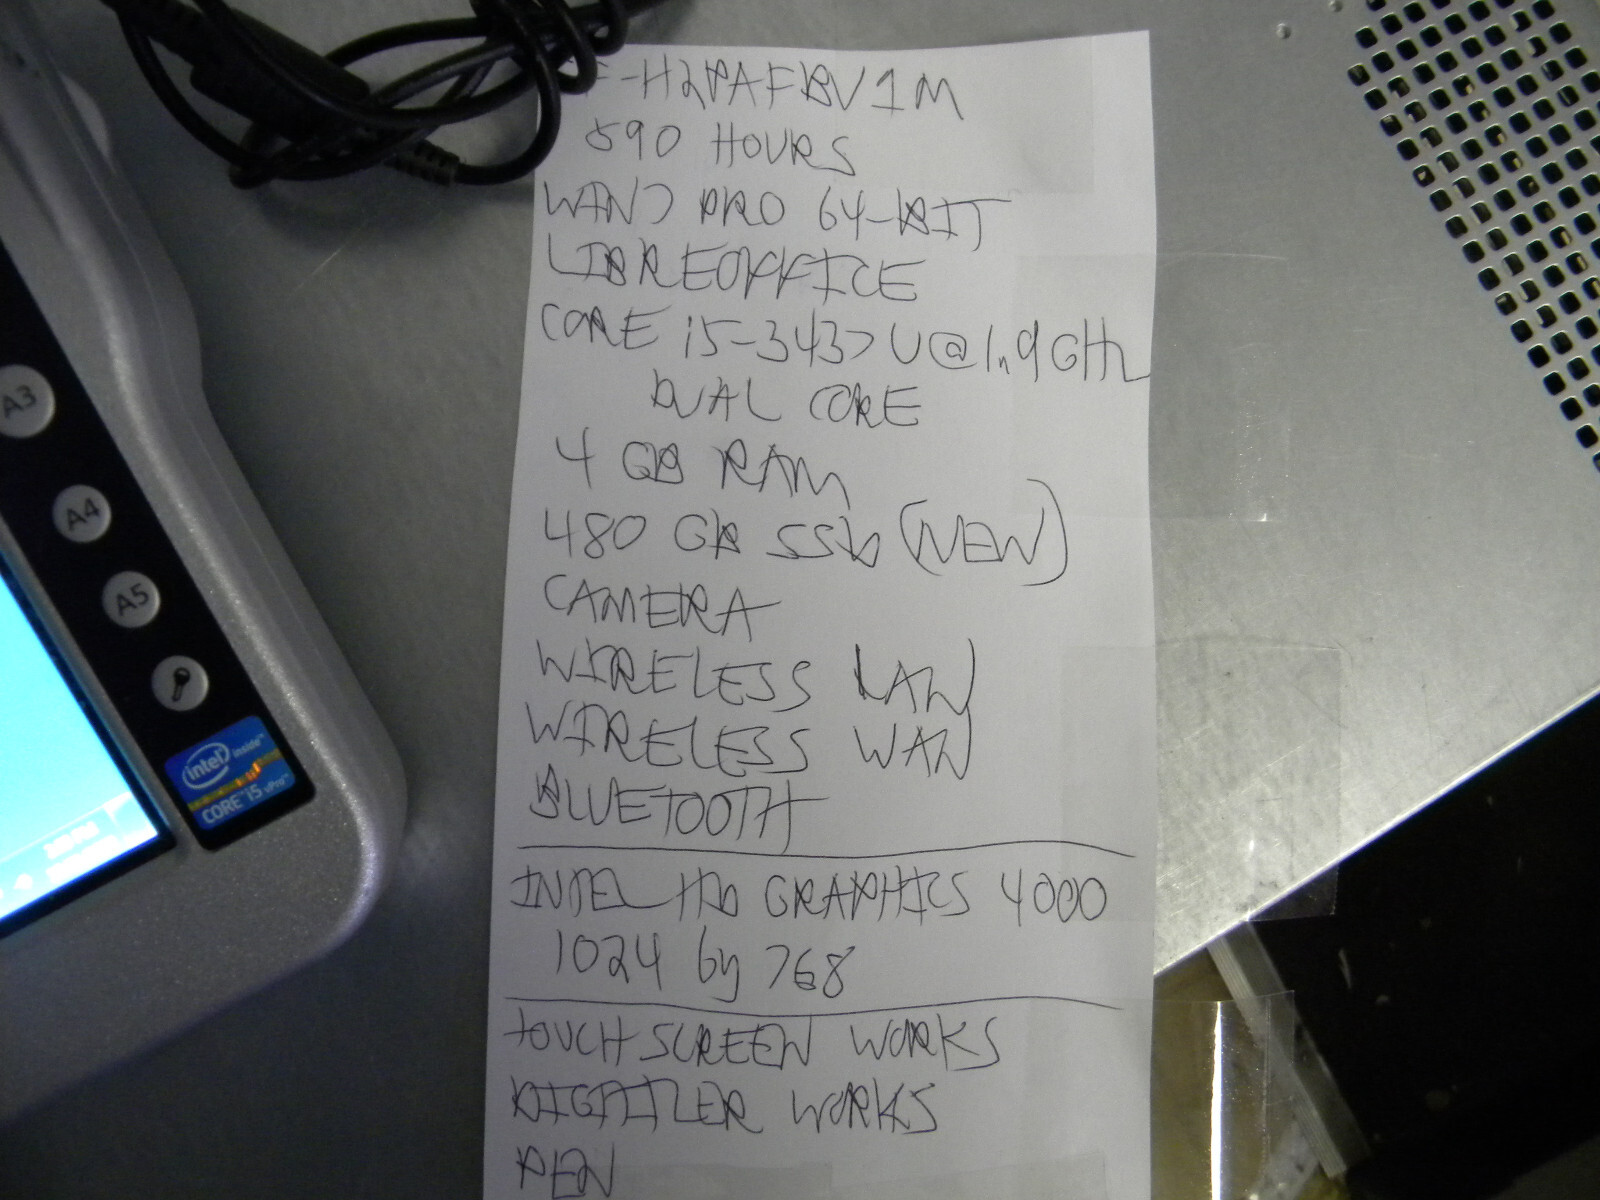 F-H2PAFBV1M
590 HOURS
WIN7 PRO 64-BIT
LIBREOFFICE
CORE i5-3437U@1.9GHz
DUAL CORE
4 GB RAM
480 GB SSD (NEW)
CAMERA
WIRELESS LAN
WIRELESS WAN
BLUETOOTH
INTEL HD GRAPHICS 4000
1024 by 768
TOUCHSCREEN WORKS
DIGITIZER WORKS
PEN
A3
A4
A5
intel inside™
CORE™ i5 vPro™